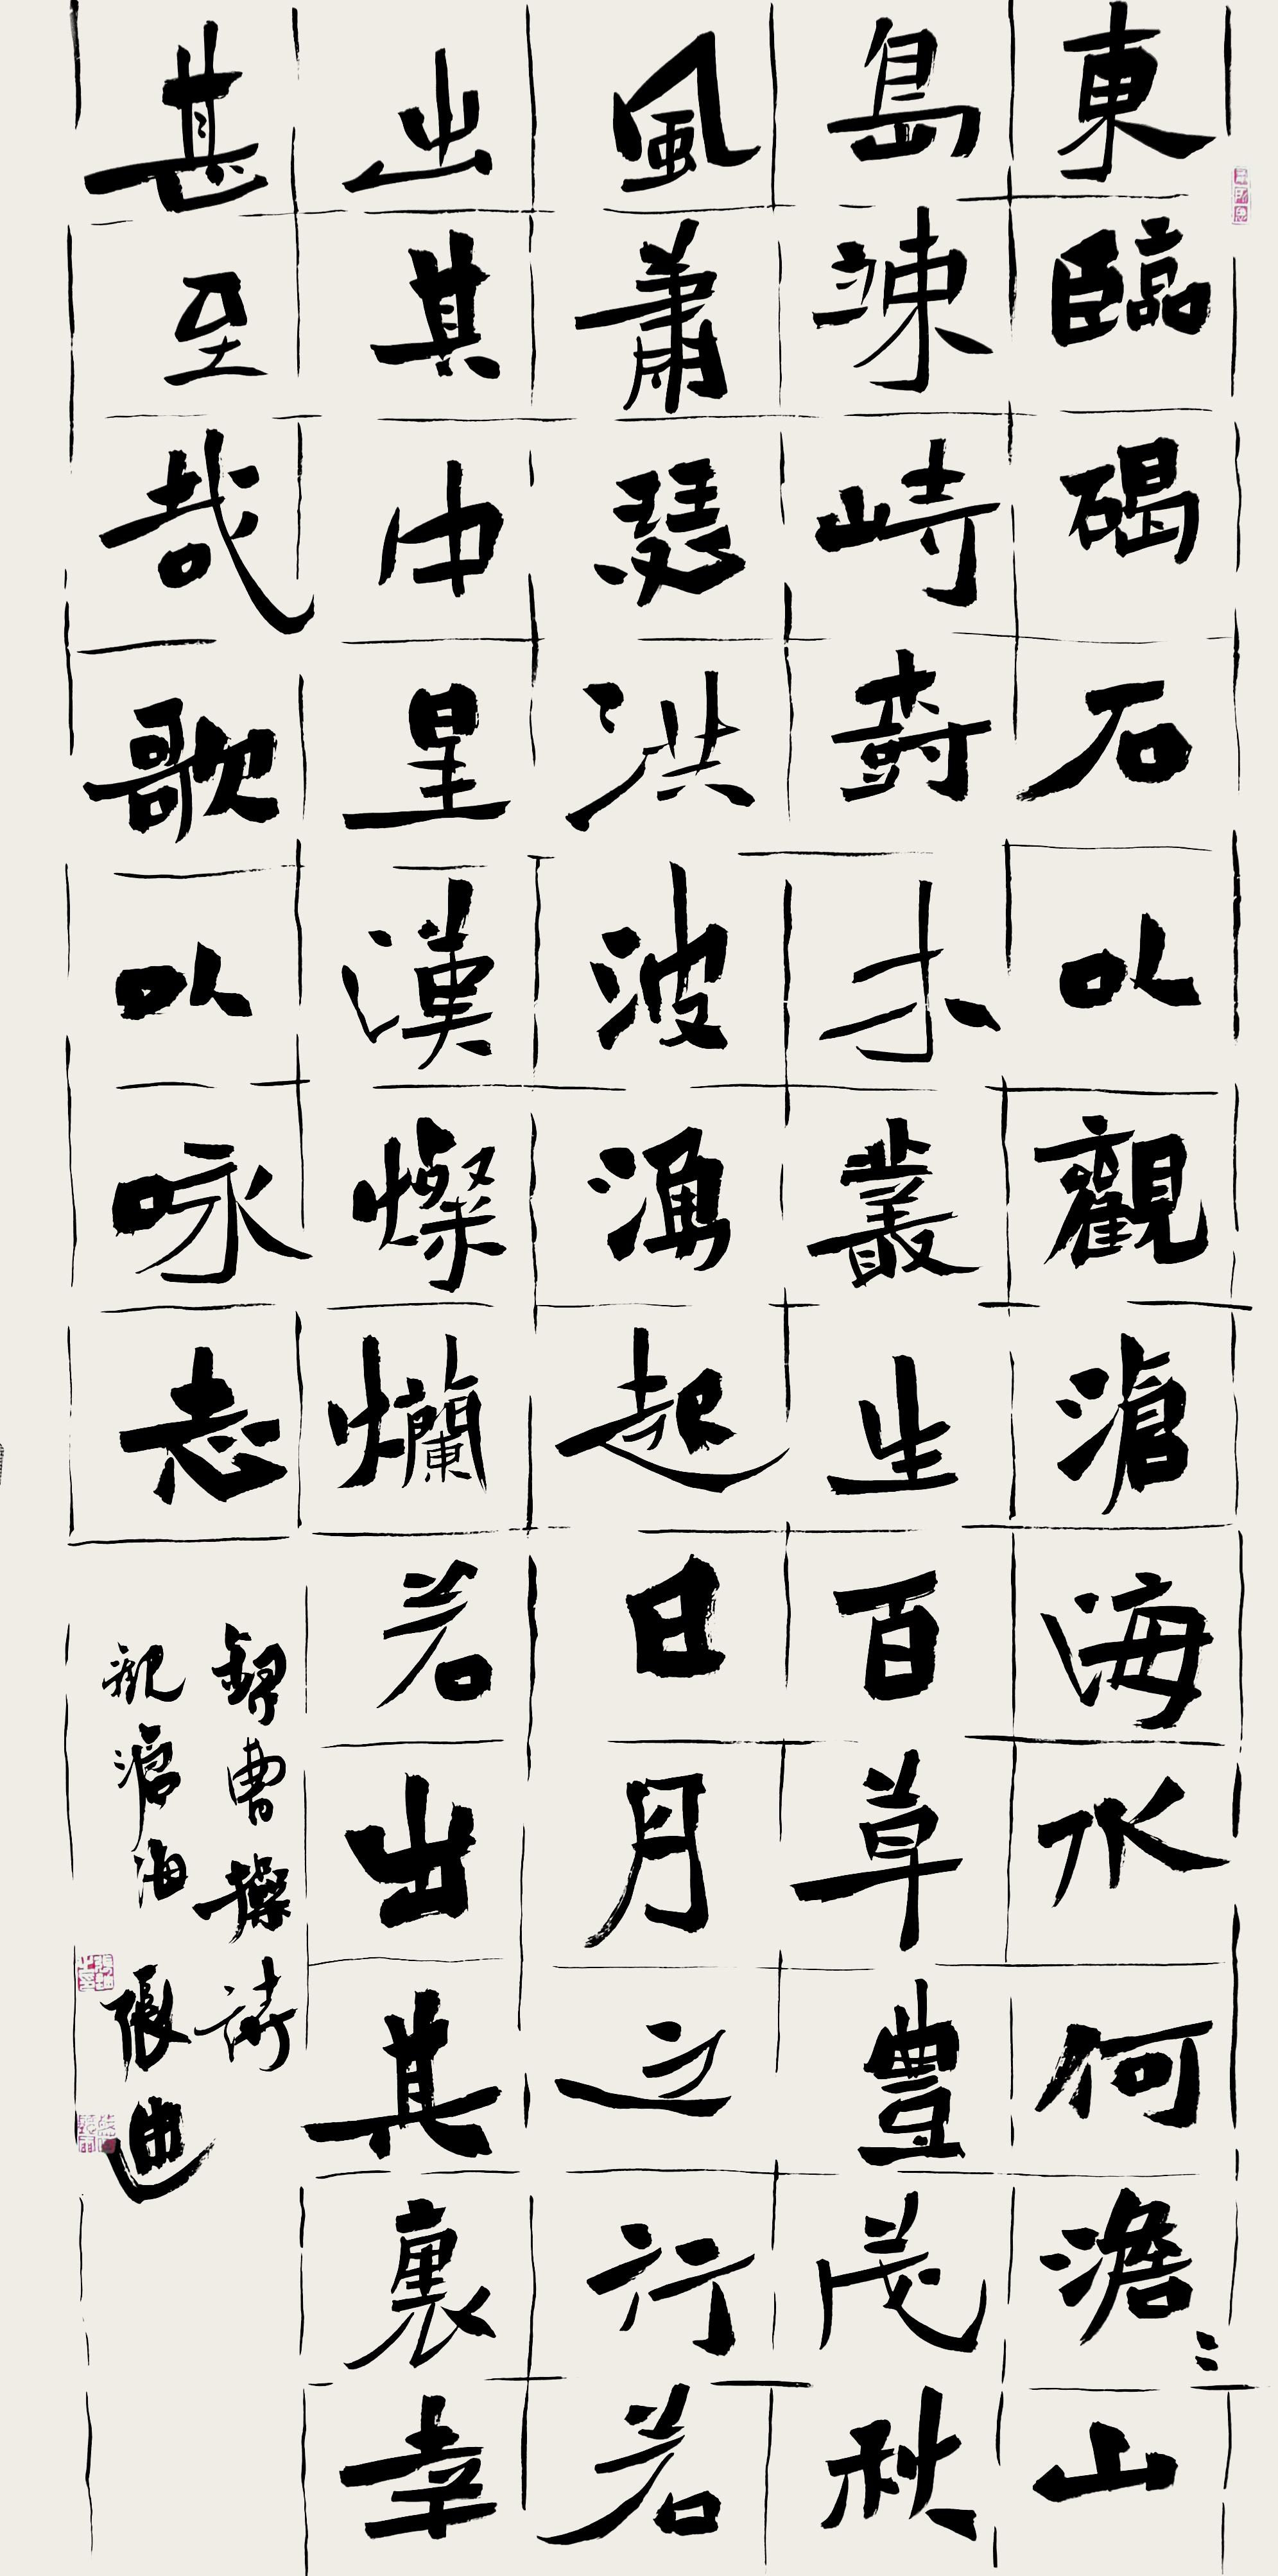 東臨碣石以觀滄海水何澹〻山
島竦峙樹木叢生百草豊茂秋
風蕭瑟洪波湧起日月之行若
出其中星漢燦爛若出其裏幸
甚至哉歌以咏志
錄曹操詩
觀滄海 張迪